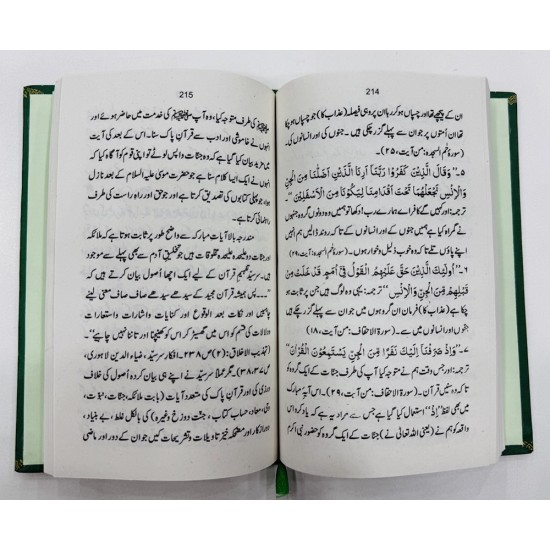 214
ان کے پیچھے تھا اور چسپاں ہو کر رہا ان پر وہی فیصلہ (عذاب کا) جو چسپاں ہو چکا
تھا ان اُمتوں پر جو ان سے پہلے گزر چکی ہیں۔ جنوں کی اور انسانوں کی۔
(سورۃ حٰم السجدہ: آیت، ۲۵)۔
۵۔ ”وَقَالَ الَّذِيْنَ كَفَرُوْا رَبَّنَا اَرِنَا الَّذَيْنِ اَضَلّٰنَا مِنَ الْجِنِّ
وَالْاِنْسِ نَجْعَلْهُمَا تَحْتَ اَقْدَامِنَا لِيَكُوْنَا مِنَ الْاَسْفَلِيْنَ“۔
ترجمہ: اور کہیں گے کافر اے ہمارے رب! دکھا تو ہمیں وہ دونوں گروہ
جنہوں نے گمراہ کیا ہم کو جنات کے اور انسانوں کے تاکہ روند ڈالیں ہم ان کو
اپنے پاؤں تلے تاکہ وہ خوب ذلیل وخوار ہوں۔ (سورۃ حٰم السجدہ: آیت، ۲۹)
۶۔ ”اُولٰئِكَ الَّذِيْنَ حَقَّ عَلَيْهِمُ الْقَوْلُ فِيْ اُمَمٍ قَدْ خَلَتْ مِنْ
قَبْلِهِمْ مِنَ الْجِنِّ وَالْاِنْسِ“۔ ترجمہ: یہی وہ لوگ ہیں جن پر ثابت ہو
چکا (عذاب کا) فرمان ان گروہوں میں جو ان سے پہلے گزر چکے ہیں
جنوں اور انسانوں میں سے۔ (سورۃ الاحقاف: من آیت، ۱۸)
۷۔ ”وَاِذْ صَرَفْنَا اِلَيْكَ نَفَرًا مِّنَ الْجِنِّ يَسْتَمِعُوْنَ الْقُرْاٰنَ“
ترجمہ: اور جس وقت ہم نے متوجہ کیا آپ کی طرف جنات کے ایک گروہ کو
تاکہ وہ سنیں قرآن۔ (سورۃ الاحقاف: من آیت، ۲۹)۔ اس آیۂ مبارکہ
میں بھی لفظ ”اِذْ“ استعمال کیا گیا ہے جس سے مراد یہ ہے کہ یاد کرو اس
واقعہ کو ہم نے (یعنی اللہ تعالٰی نے) جنات کے ایک گروہ کو حضور نبی اکرم
215
ﷺ کی طرف متوجہ کیا، وہ آپ ﷺ کی خدمت میں حاضر ہوئے اور
انہوں نے خاموشی اور ادب سے قرآنِ پاک سنا۔ اس کے بعد کی آیت
میں مزید بیان کیا گیا ہے کہ وہ جنات واپس لوٹے تو اپنی قوم کو آگاہ کیا کہ
انہوں نے ایک ایسا کلام سنا ہے جو حضرت موسٰی علیہ السلام کے بعد نازل
ہوا، پہلی کتابوں کی تصدیق کرتا ہے اور جو حق اور راہِ راست کی طرف
راہنمائی کرتا ہے۔
مندرجہ بالا آیات مبارکہ سے واضح طور پر ثابت ہوتا ہے کہ ملائکہ
و جنات دو علیحدہ علیحدہ مخلوقات ہیں جو تخلیقِ آدم سے بھی پہلے سے موجود
ہیں۔ سرسید تفہیمِ قرآن کے لیے ایک اچھا اُصول بیان کرتے ہیں کہ
”۔۔۔ پس ہمیشہ قرآن مجید کے سیدھے سیدھے صاف صاف معنی لینے
اور نکات بعد الوقوع اور کنایات واشارات واستعارات
ودلالات کی قسم کو اس میں گھسیڑ کر اس کو کھینچنا اور تاننا نہیں چاہیے“۔
(تہذیب الاخلاق: (۲) ص ۲۳۸۔ افکارِ سرسید، ضیاء الدین لاہوری،
ص ۳۷، ۳۸)۔ مگر عملاً سرسید نے اپنے ہی بیان کردہ اُصول کی خلاف
ورزی کی اور قرآنِ پاک کی متعدد آیات (بابت ملائکہ، جنات، نبوت،
وحی، معاد، حساب کتاب، جنت و دوزخ وغیرہ) کی بالکل غلط، بے بنیاد،
دوراز کار اور مضحکہ خیز تاویلات و تشریحات کیں جو ان کے دور اور ماضی